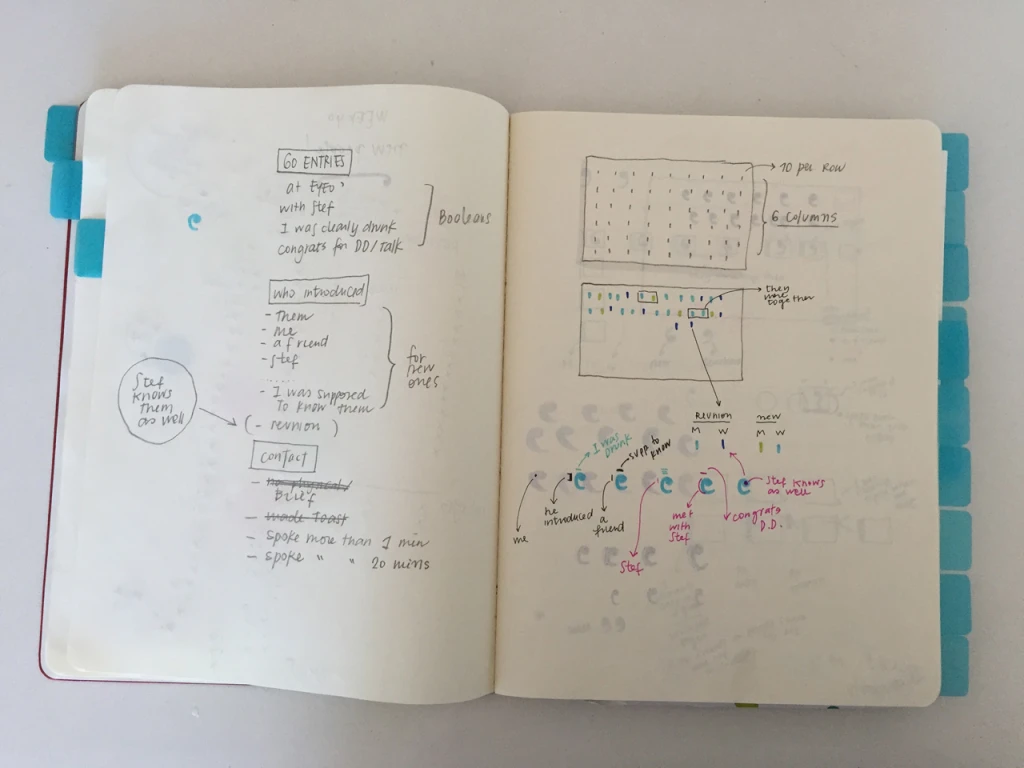 60 ENTRIES
at EYEO'
with Stef
I was clearly drunk
congrats for DD/Talk
Booleans
who introduced
- Them
- me
- a friend
- Stef
.....
- I was supposed
To know them
(- reunion )
for
new
ones
Stef
knows
them
as well
contact
- no physical/
Brief
- made Toast
- spoke more than 1 min
- spoke " " 20 mins
10 per row
6 columns
they
were
together
Reunion
M W
new
M W
I was
Drunk
supp to
know
me
he
introduced
a
friend
Stef
met
with
Stef
congrats
D.D.
Stef knows
as well